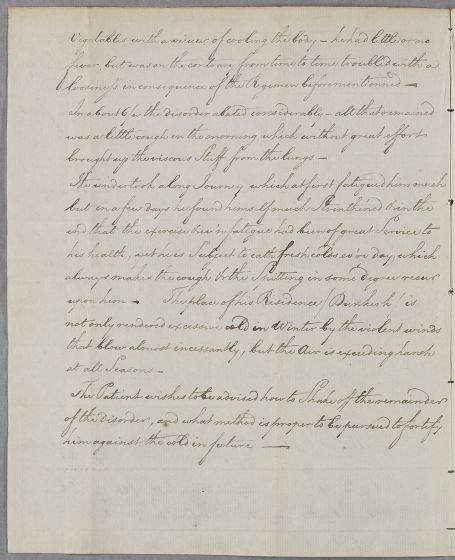 Vegetables with a view of cooling the body – he had little or no
fever, but was on the contrary from time to time troubled with a
looseness in consequence of the Regimen beforementioned –
In about the disorder abated considerably – all that remained
was a little cough in the morning which without great effort
brought up the viscous Stuff from the lungs –
He undertook a long Journey which at first fatigued him much
but in a few days he found himself much Strengthened & in the
end that the exercise & even fatigue had been of great Service to
his health, yet he is Subject to catch fresh colds every day, which
always makes the cough & the Spitting in some degree recur
upon him – The place of his Residence (Dunkerk) is
not only rendered excessive cold in Winter by the violent winds
that blow almost incessantly, but the Air is exceeding harsh
at all Seasons –
The Patient wishes to be advised how to Shake off the remainder
of the disorder, and what method is proper to be pursued to fortify
him against the cold in future —